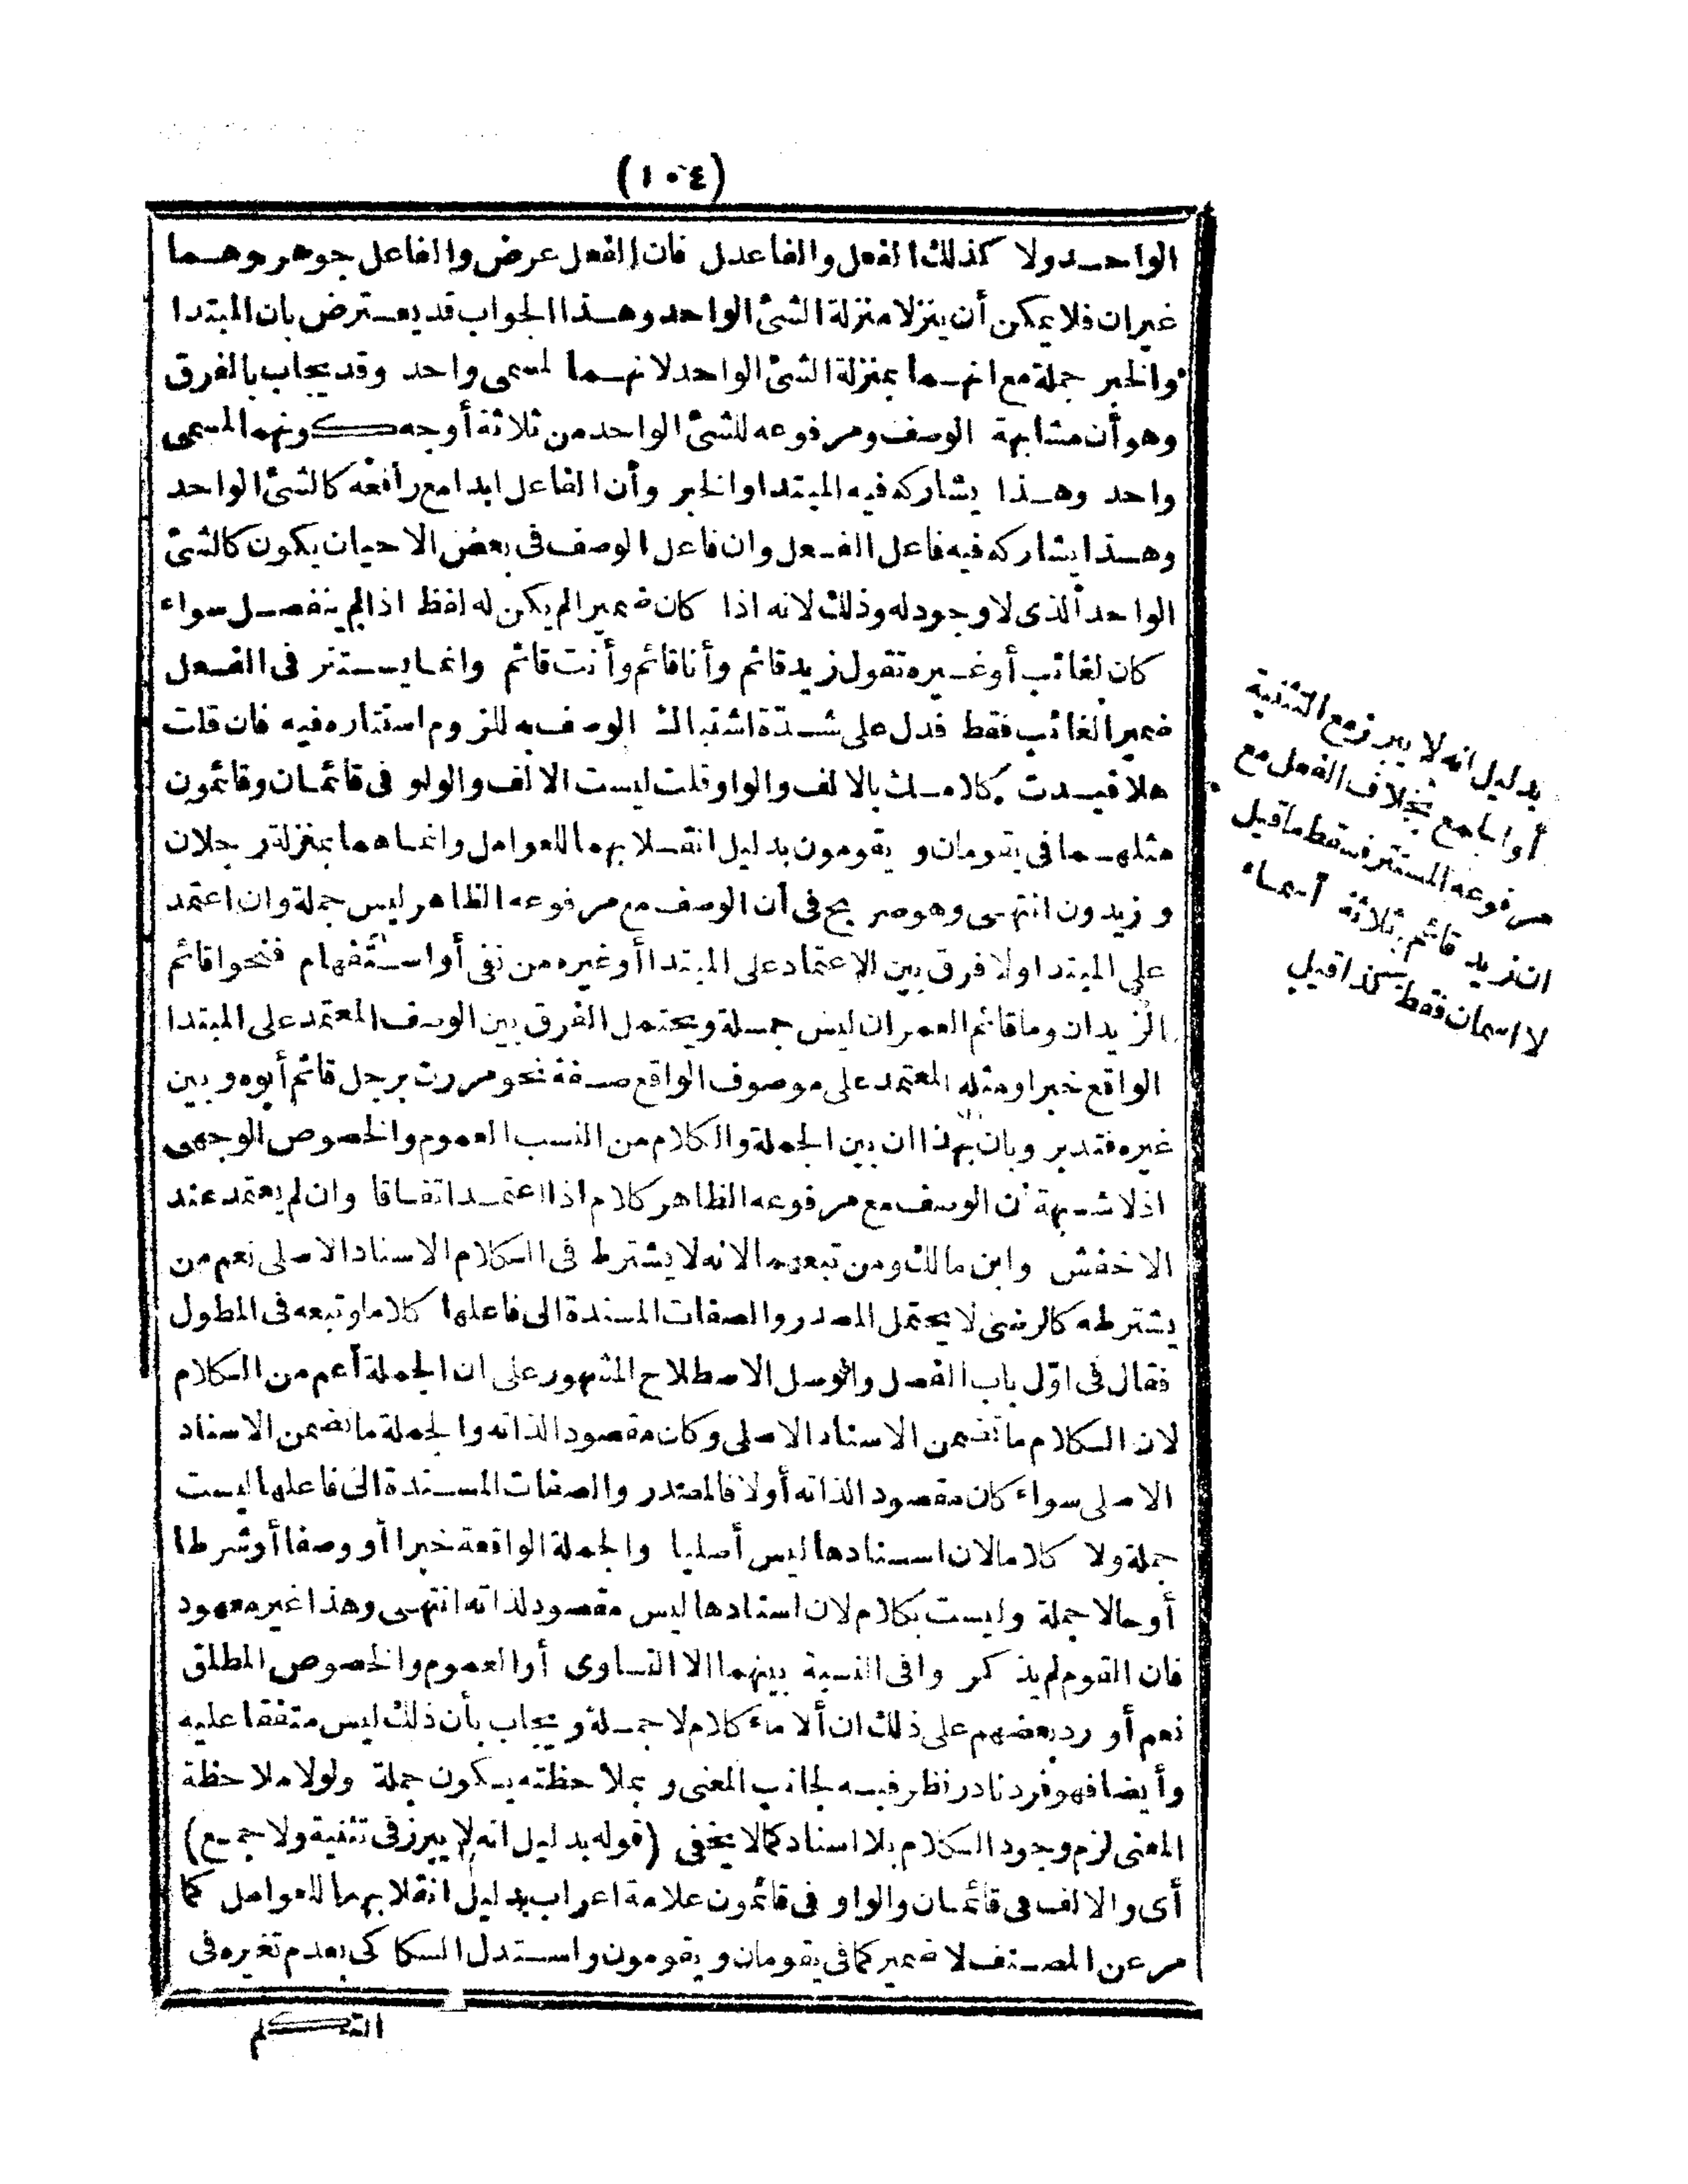 (١٠٤)
الواحد ولا كذلك الفعل والفاعل فان الفعل عرض والفاعل جوهر وهما
غيران فلا يمكن أن ينزلا منزلة الشئ الواحد وهذا الجواب قد يعترض بان المبتدا
والخبر جملة مع انهما بمنزلة الشئ الواحد لانهما لمسمى واحد وقد يجاب بالفرق
وهو أن مشابهة الوصف ومرفوعه للشئ الواحد من ثلاثة أوجه كونهما لمسمى
واحد وهذا يشاركه فيه المبتدا والخبر وأن الفاعل ابدا مع رافعه كالشئ الواحد
وهذا يشاركه فيه فاعل الفعل وان فاعل الوصف فى بعض الاحيان يكون كالشئ
الواحد الذى لا وجود له وذلك لانه اذا كان ضميرا لم يكن له لفظ اذا لم ينفصل سواء
كان لغائب أو غيره تقول زيد قائم وأنا قائم وأنت قائم وانما يستتر فى الفعل
ضمير الغائب فقط فدل على شدة اشتباك الوصف به للزوم استتاره فيه فان قلت
هلا قيدت كلامك بالالف والواو قلت ليست الالف والواو فى قائمان وقائمون
مثلهما فى يقومان و يقومون بدليل انقلابهما للعوامل وانما هما بمنزلة رجلان
و زيدون انتهى وهو صر يح فى أن الوصف مع مرفوعه الظاهر ليس جملة وان اعتمد
على المبتدا ولا فرق بين الاعتماد على المبتدا أو غيره من نفى أو استفهام فنحو اقائم
الزيدان وما قائم العمران ليس جملة ويحتمل الفرق بين الوصف المعتمد على المبتدا
الواقع خبرا ومثله المعتمد على موصوف الواقع صفة نحو مررت برجل قائم أبوه و بين
غيره فتدبر وبان بهذا ان بين الجملة والكلام من النسب العموم والخصوص الوجهى
اذ لا شبهة أن الوصف مع مرفوعه الظاهر كلام اذا اعتمد اتفاقا وان لم يعتمد عند
الاخفش وابن مالك ومن تبعهما لانه لا يشترط فى الكلام الاسناد الاصلى نعم من
يشترطه كالرضى لا يحتمل المصدر والصفات المسندة الى فاعلها كلاما وتبعه فى المطول
فقال فى اوّل باب الفصل والوصل الاصطلاح المشهور على ان الجملة أعم من الكلام
لان الكلام ما تضمن الاسناد الاصلى وكان مقصود الذاته والجملة ما تضمن الاسناد
الاصلى سواء كان مقصود الذاته أولا فالمصدر والصفات المسندة الى فاعلها ليست
جملة ولا كلاما لان اسنادها ليس أصليا والجملة الواقعة خبرا أو وصفا أو شرطا
أو حالا جملة وليست بكلام لان اسنادها ليس مقصود لذاته انتهى وهذا غير معهود
فان القوم لم يذ كر وا فى النسبة بينهما الا التساوى أو العموم والخصوص المطلق
نعم أو رد بعضهم على ذلك ان ألا ماء كلام لا جملة و يجاب بأن ذلك ليس متفقا عليه
وأيضا فهو فرد نادر نظر فيه لجانب المعنى و بملاحظته يكون جملة ولولا ملاحظة
المعنى لزم وجود الكلام بلا اسناد كما لا يخفى (قوله بدليل انه لا يبرز فى تثنية ولا جمع)
أى والالف فى قائمان والواو فى قائمون علامة اعراب بدليل انقلابهما للعوامل كما
مر عن المصنف لا ضمير كما فى يقومان و يقومون واستدل السكا كى بعدم تغيره فى
التكلم
بدليل انه لا يبرز مع التثنية
أو الجمع بخلاف الفعل مع
مرفوعه المستتر فسقط ما قيل
ان زيد قائم ثلاثة أسماء
لا اسمان فقط كذا قيل